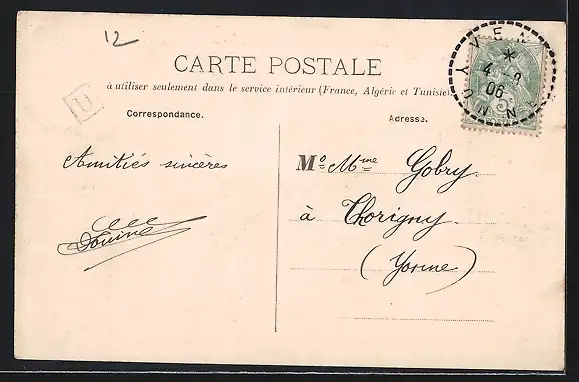 12
CARTE POSTALE
à utiliser seulement dans le service intérieur (France, Algérie et Tunisie).
Correspondance.
Adresse.
4 -8
06
U
Amitiés sincères
Mº Mme Gobry.
à Thorigny.
(Yonne)